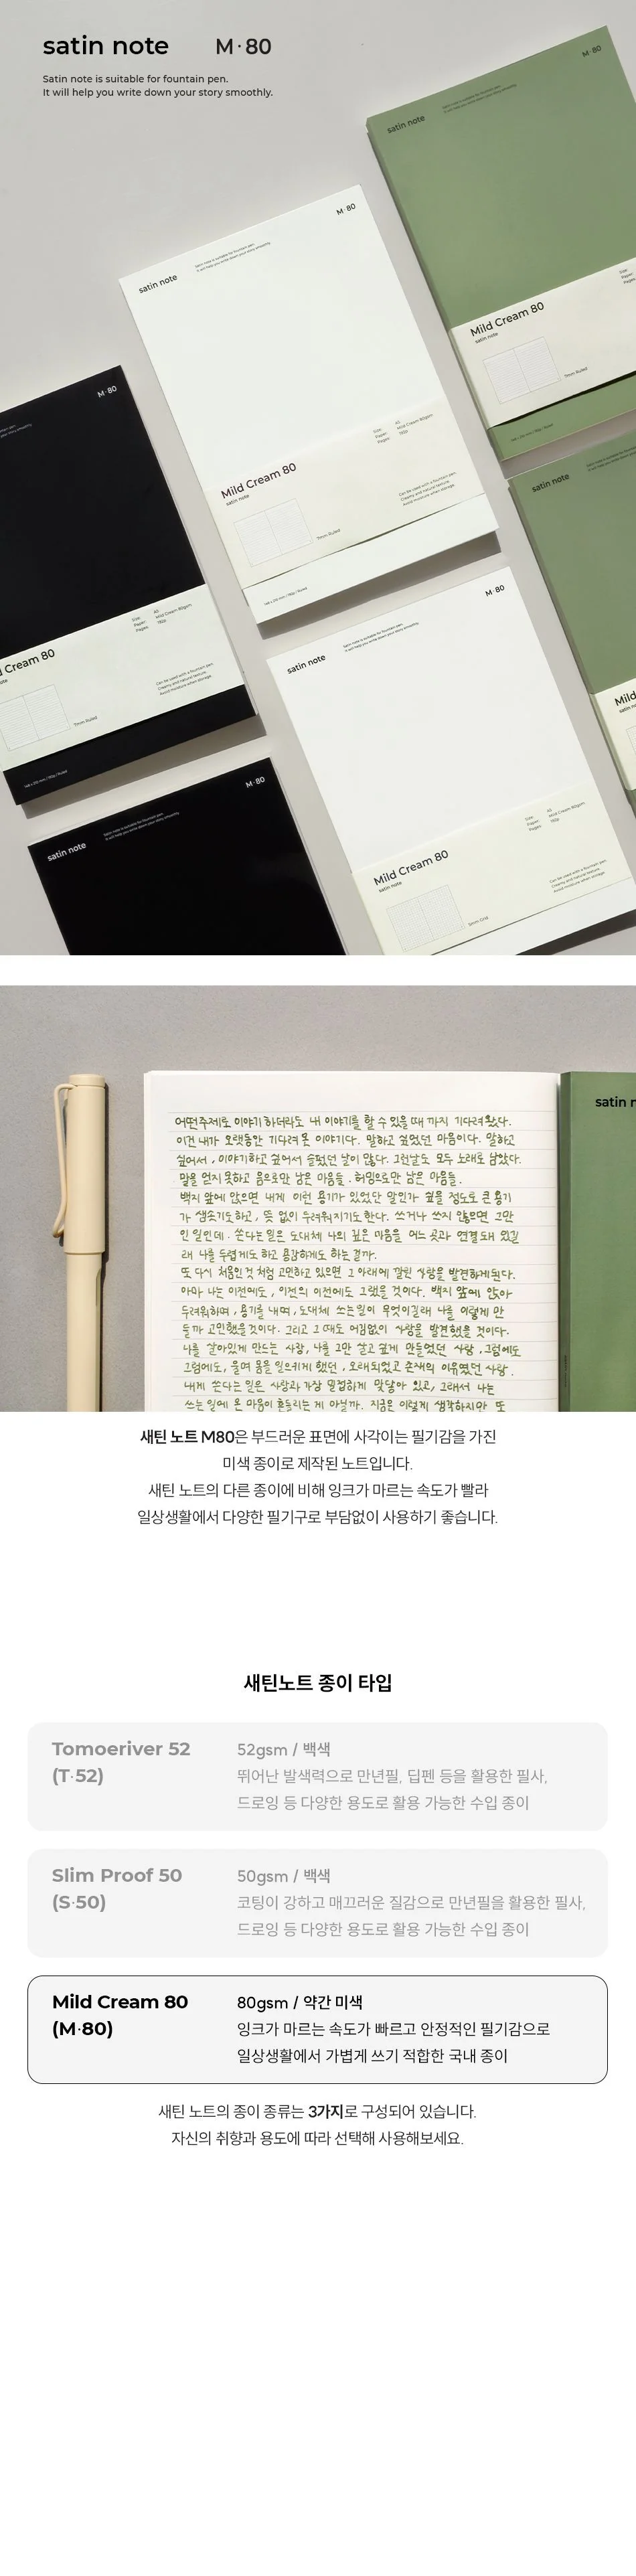 satin note M·80
Satin note is suitable for fountain pen.
It will help you write down your story smoothly.
M·80
satin note
M·80
satin note is suitable for fountain pen.
It will help you write down your story smoothly.
satin note
Mild Cream 80
satin note
7mm Ruled
M·80
Mild Cream 80
satin note
Size A5
Paper Mild Cream 80gsm
Pages 192p
Can be used with a fountain pen.
Creamy and natural texture.
Avoid moisture when storage.
7mm Ruled
M·80
satin note
Cream 80
Size A5
Paper Mild Cream 80gsm
Pages 192p
Can be used with a fountain pen.
Creamy and natural texture.
Avoid moisture when storage.
7mm Ruled
M·80
satin note is suitable for fountain pen.
It will help you write down your story smoothly.
satin note
Mild Cream 80
satin note
Size A5
Paper Mild Cream 80gsm
Pages 192p
Can be used with a fountain pen.
Creamy and natural texture.
Avoid moisture when storage.
5mm Grid
M·80
satin note
Mild
어떤 주제로 이야기하더라도 내 이야기를 할 수 있을 때 까지 기다려왔다.
이건 내가 오랫동안 기다려 온 이야기다. 말하고 싶었던 마음이다. 말하고
싶어서, 이야기하고 싶어서 슬펐던 날이 많다. 그런날도 모두 노래로 남았다.
말을 얻지 못하고 음으로만 남은 마음들. 허밍으로만 남은 마음들.
백지 앞에 앉으면 내게 이런 용기가 있었단 말인가 싶을 정도로 큰 용기
가 샘솟기도하고, 뜻 없이 두려워지기도한다. 쓰거나 쓰지 않으면 그만
인 일인데. 쓴다는 일은 도대체 나의 깊은 마음을 어느 곳과 연결돼 있길
래 나를 두렵게도 하고 용감하게도 하는 걸까.
또 다시 처음인 것 처럼 고민하고 있으면 그 아래에 깔린 사랑을 발견하게된다.
아마 나는 이전에도, 이전의 이전에도 그랬을 것이다. 백지 앞에 앉아
두려워하며, 용기를 내며, 도대체 쓰는일이 무엇이길래 나를 이렇게 만
들까 고민했을것이다. 그리고 그 때도 어김없이 사랑을 발견했을 것이다.
나를 살아있게 만드는 사랑, 나를 그만 살고 싶게 만들었던 사랑. 그럼에도
그럼에도, 울며 몸을 일으키게 했던, 오래되었고 존재의 이유였던 사랑.
내게 쓴다는 일은 사랑과 가장 밀접하게 맞닿아 있고, 그래서 나는
쓰는 일에 온 마음이 흔들리는 게 아닐까. 지금은 이렇게 생각하지만 또
satin n
새틴 노트 M80은 부드러운 표면에 사각이는 필기감을 가진
미색 종이로 제작된 노트입니다.
새틴 노트의 다른 종이에 비해 잉크가 마르는 속도가 빨라
일상생활에서 다양한 필기구로 부담없이 사용하기 좋습니다.
새틴노트 종이 타입
Tomoeriver 52
(T·52)
52gsm / 백색
뛰어난 발색력으로 만년필, 딥펜 등을 활용한 필사,
드로잉 등 다양한 용도로 활용 가능한 수입 종이
Slim Proof 50
(S·50)
50gsm / 백색
코팅이 강하고 매끄러운 질감으로 만년필을 활용한 필사,
드로잉 등 다양한 용도로 활용 가능한 수입 종이
Mild Cream 80
(M·80)
80gsm / 약간 미색
잉크가 마르는 속도가 빠르고 안정적인 필기감으로
일상생활에서 가볍게 쓰기 적합한 국내 종이
새틴 노트의 종이 종류는 3가지로 구성되어 있습니다.
자신의 취향과 용도에 따라 선택해 사용해보세요.